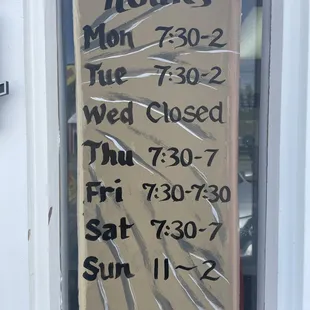 Hours
Mon 7:30-2
Tue 7:30-2
Wed Closed
Thu 7:30-7
Fri 7:30-7:30
Sat 7:30-7
Sun 11~2